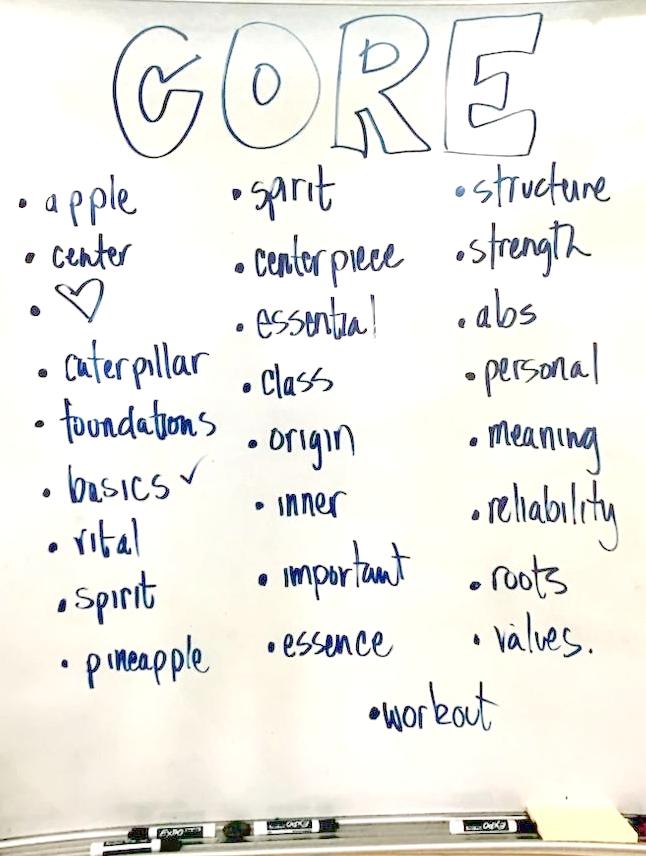 CORE
• apple
• center
• ♡
• caterpillar
• foundations
• basics ✓
• vital
• spirit
• pineapple
• spirit
• centerpiece
• essential
• class
• origin
• inner
• important
• essence
• structure
• strength
• abs
• personal
• meaning
• reliability
• roots
• values.
• workout
EXPO
EXPO
EXPO